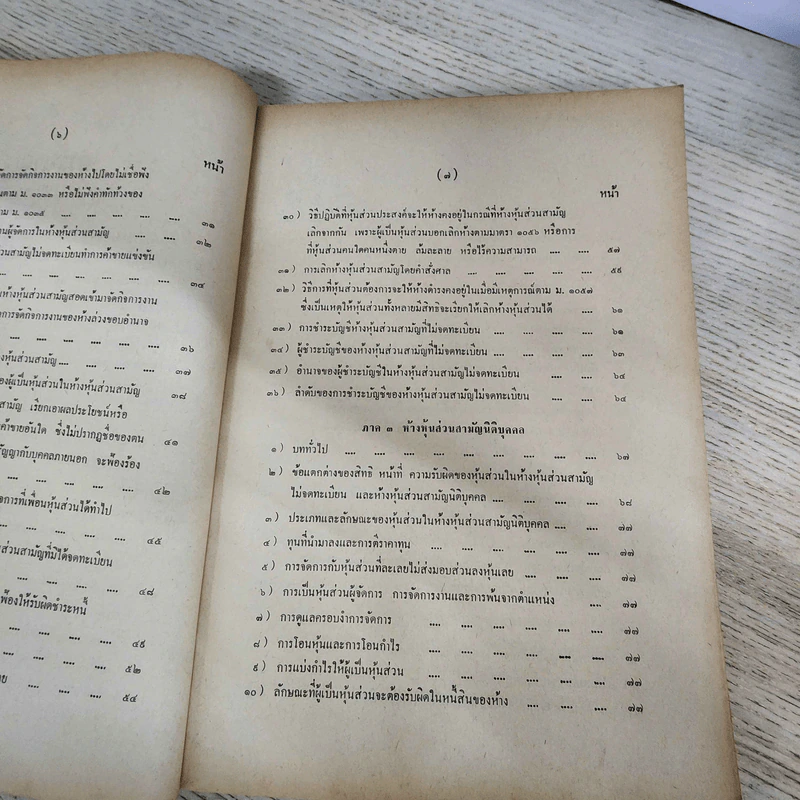 (๖)
หน้า
จัดการจัดกิจการงานของห้างไปโดยไม่เชื่อฟัง
ตาม ม. ๑๐๓๓ หรือไม่ฟังคำทักท้วงของ
ตาม ม. ๑๐๓๕ .... .... .... .... ๓๑
ผู้จัดการในห้างหุ้นส่วนสามัญ .... .... ๓๒
ส่วนสามัญไม่จดทะเบียนทำการค้าขายแข่งขัน
.... .... .... .... .... .... ๓๔
ห้างหุ้นส่วนสามัญสอดเข้ามาจัดกิจการงาน
การจัดกิจการงานของห้างล่วงขอบอำนาจ
.... .... .... .... .... .... ๓๖
หุ้นส่วนสามัญ .... .... .... .... ๓๗
ของผู้เป็นหุ้นส่วนในห้างหุ้นส่วนสามัญ ๓๘
สามัญ เรียกเอาผลประโยชน์หรือ
ค้าขายอันใด ซึ่งไม่ปรากฏชื่อของตน ๔๑
สัญญากับบุคคลภายนอก จะฟ้องร้อง
.... .... .... .... .... ๔๒
จการที่เพื่อนหุ้นส่วนได้ทำไป
.... .... .... .... .... ๔๕
ส่วนสามัญที่มิได้จดทะเบียน
.... .... .... .... ๔๘
ฟ้องให้รับผิดชำระหนี้
.... .... .... .... ๔๙
.... .... .... .... ๕๒
.... .... .... ๕๔
(๗)
หน้า
๓๐) วิธีปฏิบัติที่หุ้นส่วนประสงค์จะให้ห้างคงอยู่ในกรณีที่ห้างหุ้นส่วนสามัญ
เลิกจากกัน เพราะผู้เป็นหุ้นส่วนบอกเลิกห้างตามมาตรา ๑๐๕๖ หรือการ
ที่หุ้นส่วนคนใดคนหนึ่งตาย ล้มละลาย หรือไร้ความสามารถ .... .... ๕๗
๓๑) การเลิกห้างหุ้นส่วนสามัญโดยคำสั่งศาล .... .... .... .... ๕๙
๓๒) วิธีการที่หุ้นส่วนต้องการจะให้ห้างดำรงคงอยู่ในเมื่อมีเหตุการณ์ตาม ม. ๑๐๕๗
ซึ่งเป็นเหตุให้หุ้นส่วนทั้งหลายมีสิทธิจะเรียกให้เลิกห้างหุ้นส่วนได้ .... ๖๑
๓๓) การชำระบัญชีห้างหุ้นส่วนสามัญที่ไม่จดทะเบียน .... .... .... ๖๑
๓๔) ผู้ชำระบัญชีของห้างหุ้นส่วนสามัญที่ไม่จดทะเบียน .... .... .... ๖๓
๓๕) อำนาจของผู้ชำระบัญชีในห้างหุ้นส่วนสามัญไม่จดทะเบียน .... .... ๖๔
๓๖) ลำดับของการชำระบัญชีของห้างหุ้นส่วนสามัญไม่จดทะเบียน .... .... ๖๔
ภาค ๓ ห้างหุ้นส่วนสามัญนิติบุคคล
๑) บททั่วไป .... .... .... .... .... .... .... ๖๗
๒) ข้อแตกต่างของสิทธิ หน้าที่ ความรับผิดของหุ้นส่วนในห้างหุ้นส่วนสามัญ
ไม่จดทะเบียน และห้างหุ้นส่วนสามัญนิติบุคคล .... .... .... .... ๖๘
๓) ประเภทและลักษณะของหุ้นส่วนในห้างหุ้นส่วนสามัญนิติบุคคล .... .... ๗๗
๔) ทุนที่นำมาลงและการตีราคาทุน .... .... .... .... .... ๗๗
๕) การจัดการกับหุ้นส่วนที่ละเลยไม่ส่งมอบส่วนลงหุ้นเลย .... .... .... ๗๗
๖) การเป็นหุ้นส่วนผู้จัดการ การจัดการงานและการพ้นจากตำแหน่ง .... ๗๗
๗) การดูแลครอบงำการจัดการ .... .... .... .... .... ๗๗
๘) การโอนหุ้นและการโอนกำไร .... .... .... .... .... ๗๗
๙) การแบ่งกำไรให้ผู้เป็นหุ้นส่วน .... .... .... .... .... ๗๗
๑๐) ลักษณะที่ผู้เป็นหุ้นส่วนจะต้องรับผิดในหนี้สินของห้าง .... .... .... ๗๗